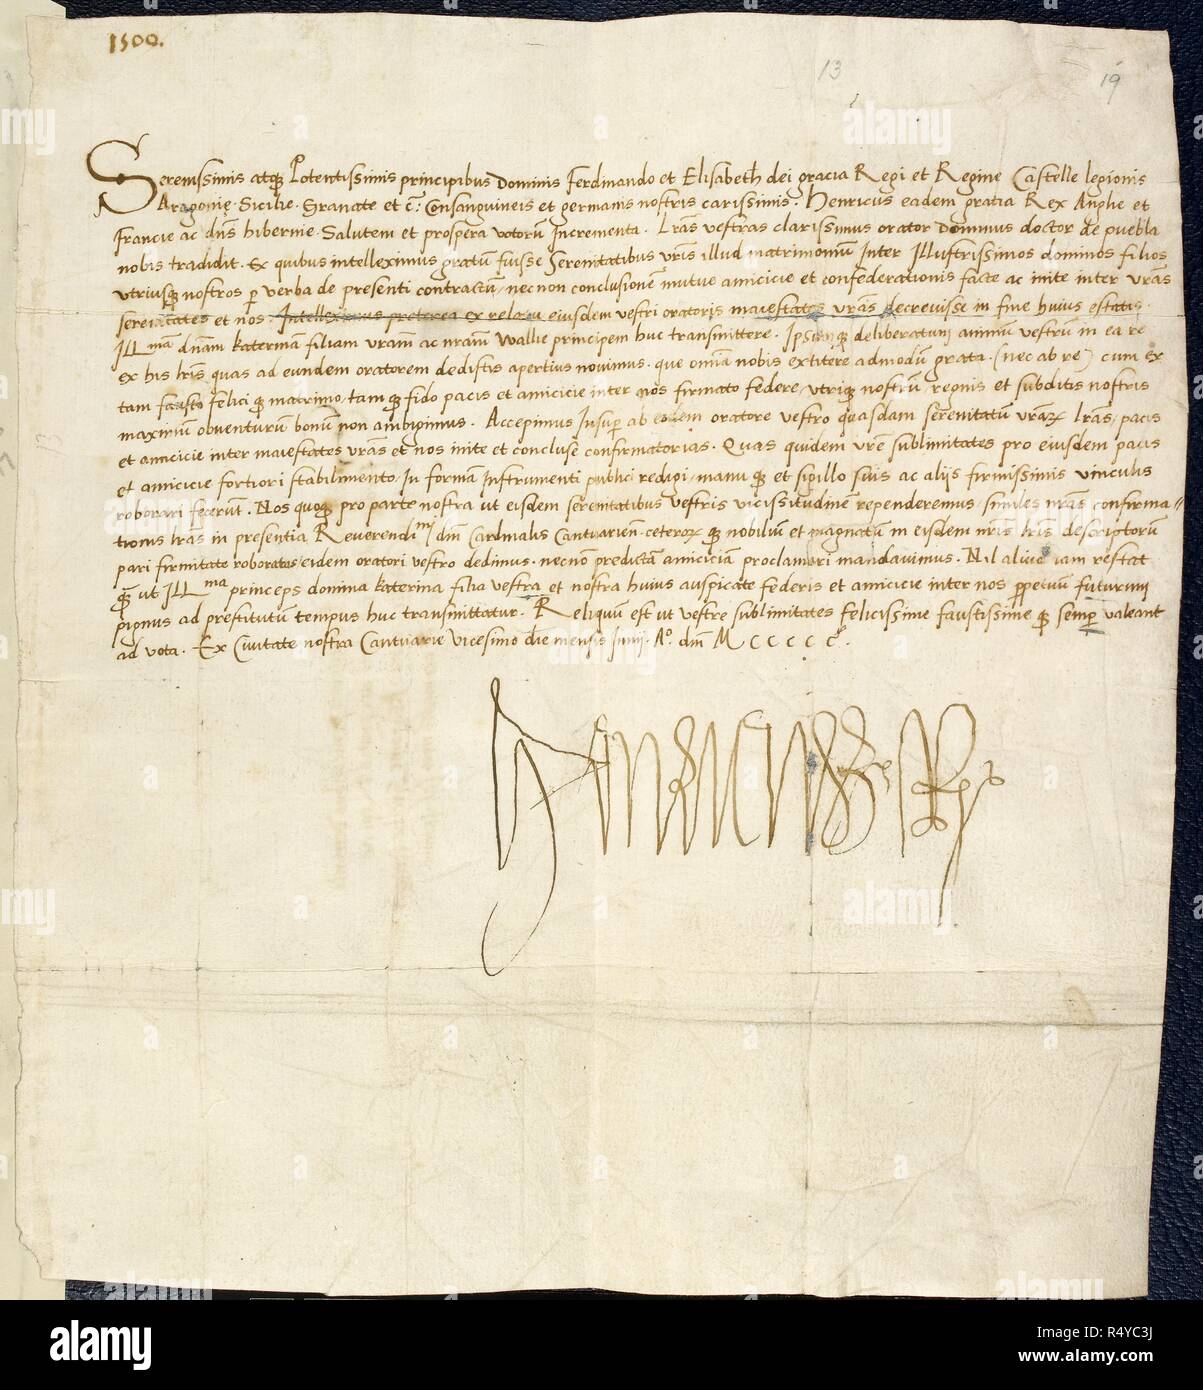 1500.
13
19
Serenissimis atq Potentissimis principibus Dominis Ferdinando et Elisabeth dei gracia Regi et Regine Castelle legionis
Aragonię. Sicilie. Granate et c: Consanguineis et germanis nostris carissimis. Henricus eadem gratia Rex Anglie et
Francie ac dns hibernie. Salutem et prospera votorū Incrementa. Lras vestras clarissimus orator Dominus doctor de puebla
nobis tradidit. Ex quibus intelleximus gratū fuisse Serenitatibus vris illud matrimoniū Inter Illustrissimos dominos filios
utriusq nostros p verba de presenti contractū, necnon conclusionē mutue amicicie et confederationis facte ac inite inter vras
sereitates et nos. Intelleximus preterea ex relatu eiusdem vestri oratoris maiestates vras decreuisse in fine huius estatis.
Illma dnam katerinā filiam vram ac nram Wallie principem huc transmittere. Ipsumq deliberatum animū vestrū in ea re
ex his lris quas ad eundem oratorem dedistis apertius nouimus. que omīa nobis extitere admodū grata. (nec ab re) cum ex
tam fausto felici q matrimo, tam q fido pacis et amicicie inter nos firmato federe, utriq nostrū, regnis et subditis nostris
maximū obuenturū bonū non ambigimus. Accepimus Insup ab eodem oratore vestro quasdam serenitatū vrax lras, pacis
et amicicie inter maiestates vras et nos inite et concluse confirmatorias. Quas quidem vre sublimitates pro eiusdem pacis
et amicicie fortiori stabilimento. In formā Instrumenti publici redigi, manu q et sigillo suis ac alijs firmissimis vinculis
roborari fecerūt. Nos quoq pro parte nostra ut eisdem serenitatibus vestris vicissitudinē rependeremus, similes nras confirma-
tionis lras in presentia Reuerendimi dni Cardinalis Cantuarien. ceterox q nobiliū et magnatū in eisdem nris lris descriptorū
pari firmitate roboratas, eidem oratori vestro dedimus. necnō predictā amiciciā proclamari mandauimus. Nil aliud iam restat
q ut Illma princeps domina katerina filia vestra et nostra huius auspicate federis et amicicie inter nos ppetuū futurum
pignus ad prestitutū tempus huc transmittatur. Reliquū est ut vestre sublimitates felicissime faustissime q semp valeant
ad vota. Ex Ciuitate nostra Cantuarie vicesimo die mensis Iunij. Ao. dni MCCCCCo.
Henricus R
alamy
alamy
alamy
Image ID: R4YC3J
www.alamy.com